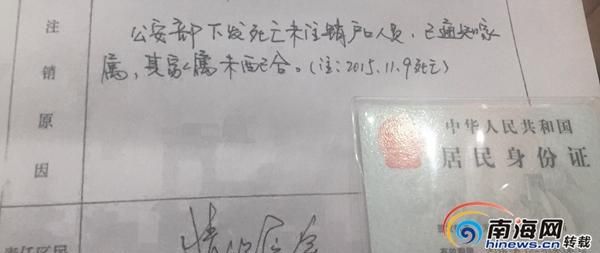 注销原因
公安部下发死亡未注销户口人员,已通知家
属,其家属未配合。(注:2015.11.9死亡)
中华人民共和国
居民身份证
责任区民
南海网
hinews.cn 转载